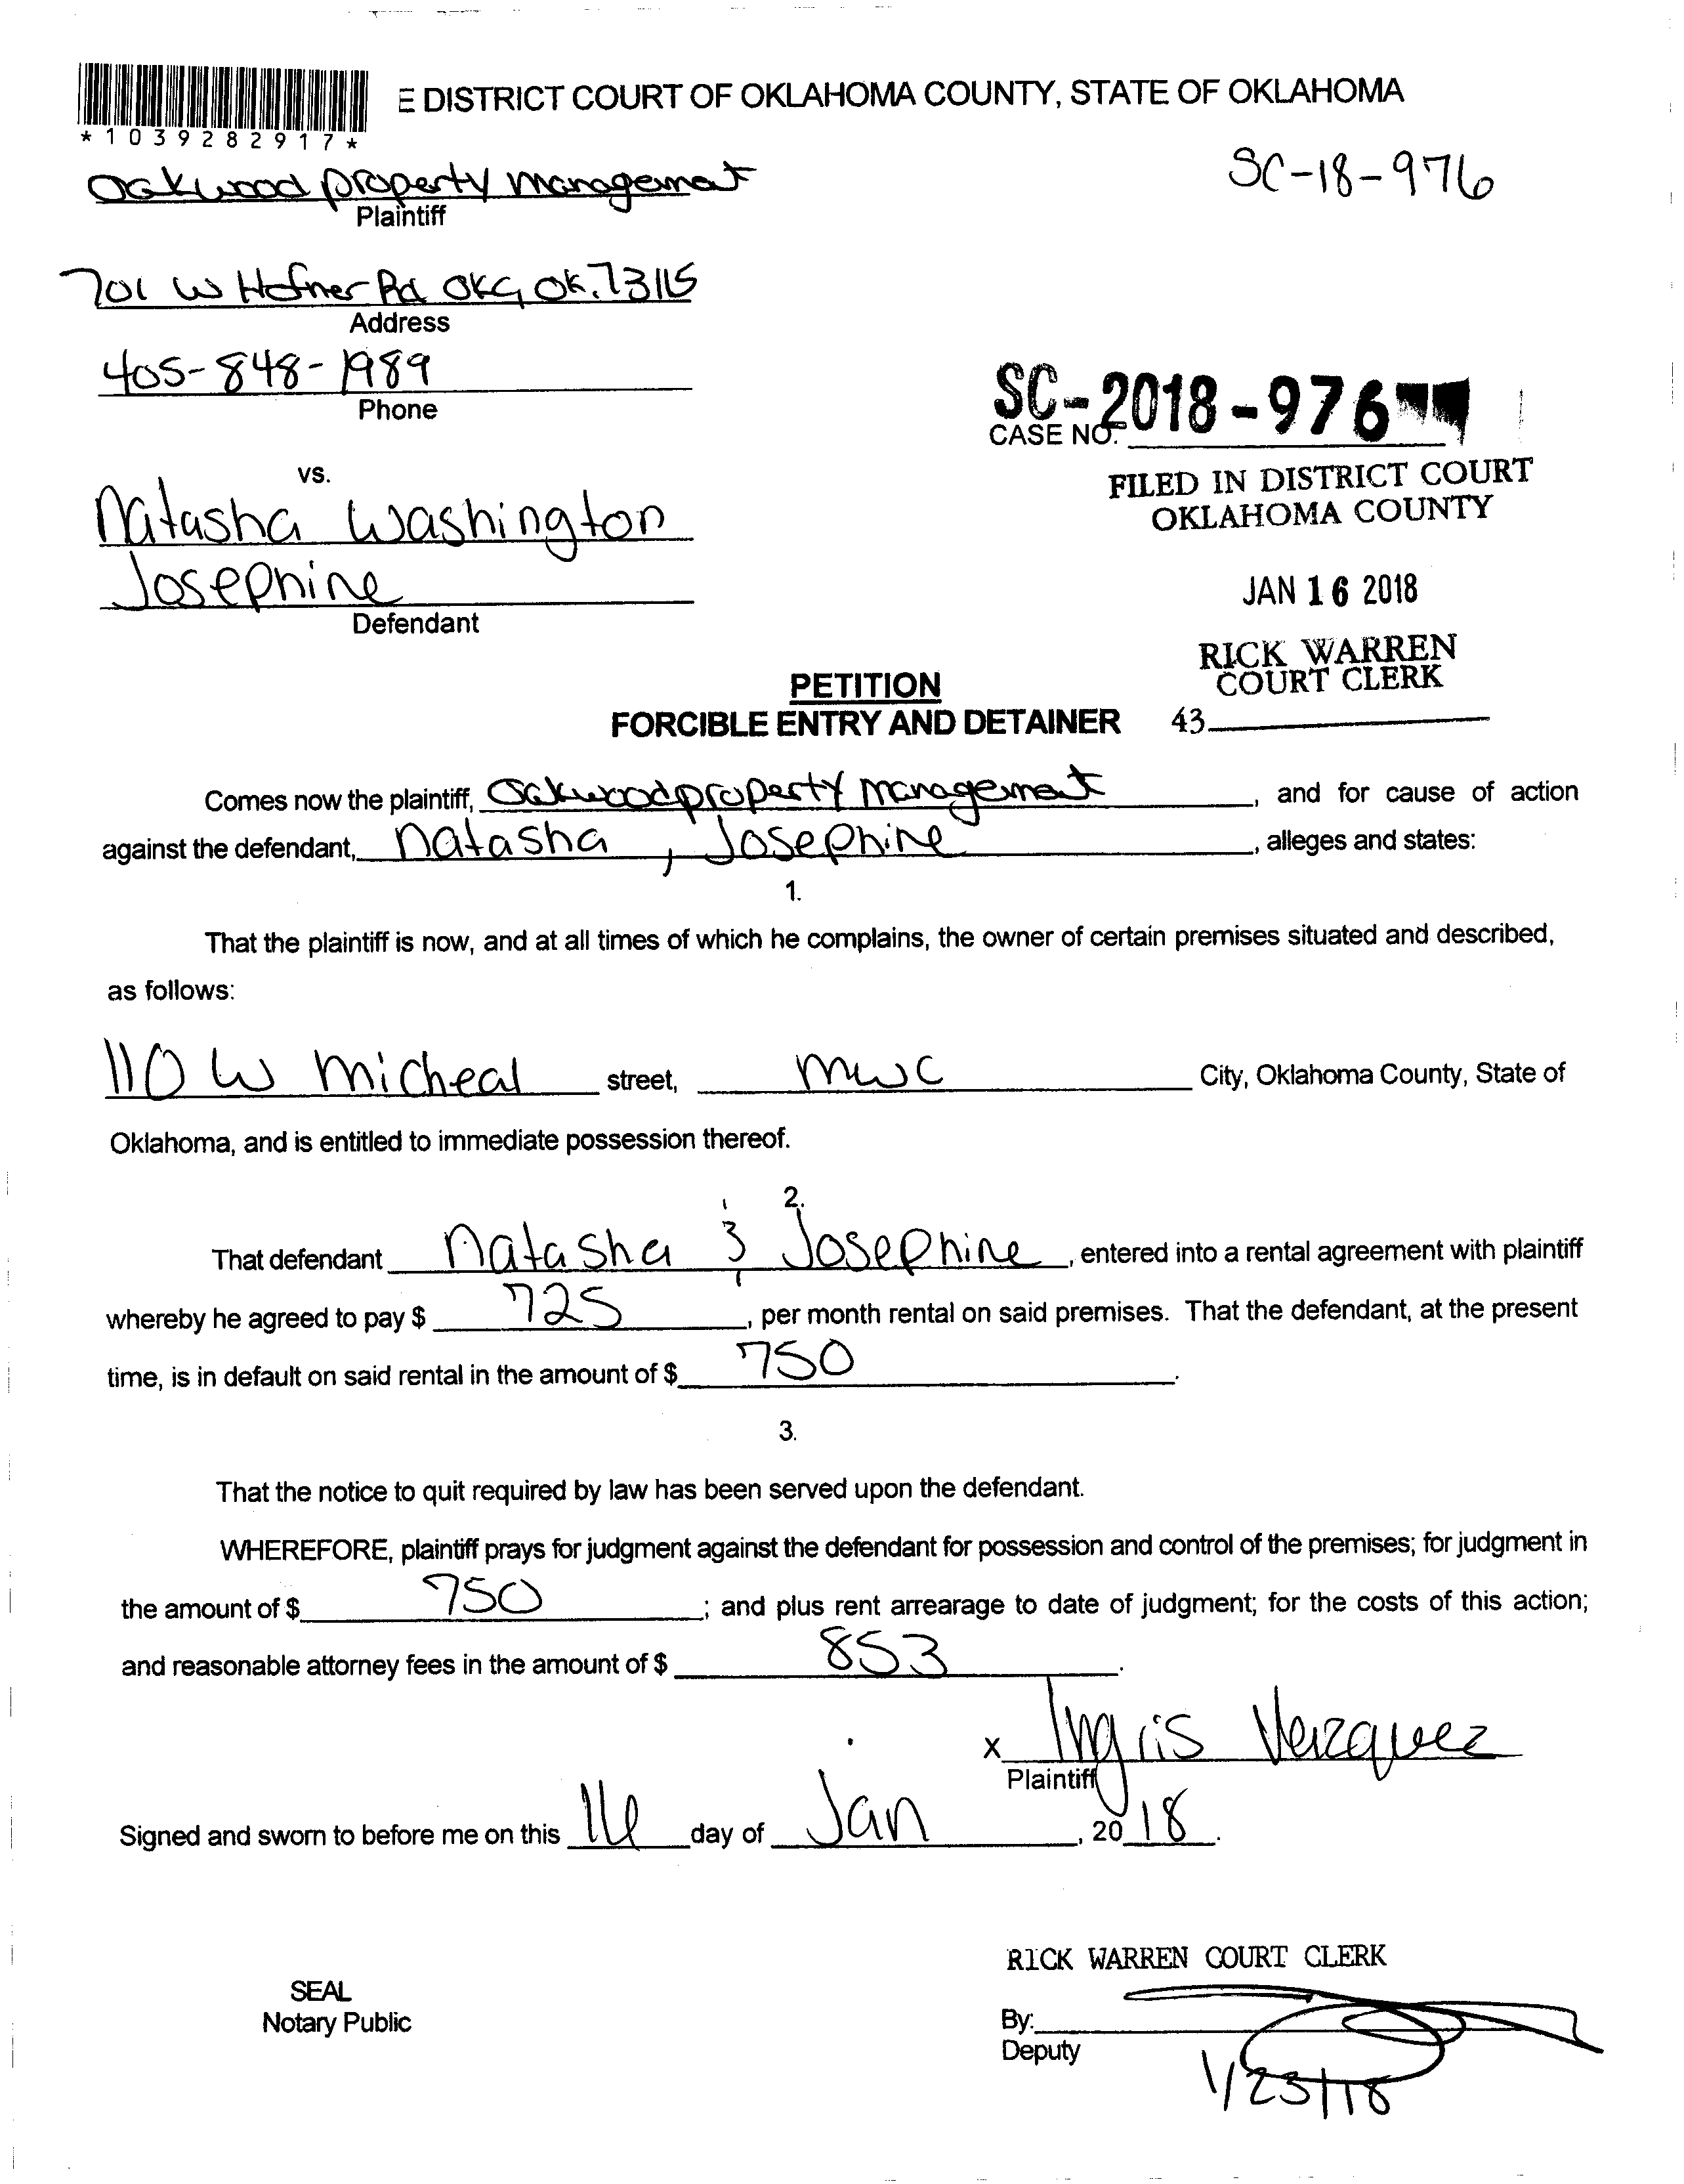 E DISTRICT COURT OF OKLAHOMA COUNTY, STATE OF OKLAHOMA
*1039282917*
SC-18-976
Oakwood property management
Plaintiff
701 W Hefner Rd OKC, OK. 73115
Address
405-848-1989
Phone
SC-2018-976
CASE NO.
vs.
FILED IN DISTRICT COURT
OKLAHOMA COUNTY
Natasha Washington
Josephine
Defendant
JAN 16 2018
RICK WARREN
COURT CLERK
43
PETITION
FORCIBLE ENTRY AND DETAINER
Comes now the plaintiff, Oakwood property management, and for cause of action
against the defendant, Natasha, Josephine, alleges and states:
1.
That the plaintiff is now, and at all times of which he complains, the owner of certain premises situated and described,
as follows:
110 W Micheal street, MWC City, Oklahoma County, State of
Oklahoma, and is entitled to immediate possession thereof.
2.
That defendant Natasha & Josephine, entered into a rental agreement with plaintiff
whereby he agreed to pay $ 725, per month rental on said premises. That the defendant, at the present
time, is in default on said rental in the amount of $ 750.
3.
That the notice to quit required by law has been served upon the defendant.
WHEREFORE, plaintiff prays for judgment against the defendant for possession and control of the premises; for judgment in
the amount of $ 750; and plus rent arrearage to date of judgment; for the costs of this action;
and reasonable attorney fees in the amount of $ 853.
x Ingris Vazquez
Plaintiff
Signed and sworn to before me on this 16 day of Jan, 2018.
RICK WARREN COURT CLERK
SEAL
Notary Public
By:
Deputy
1/23/18